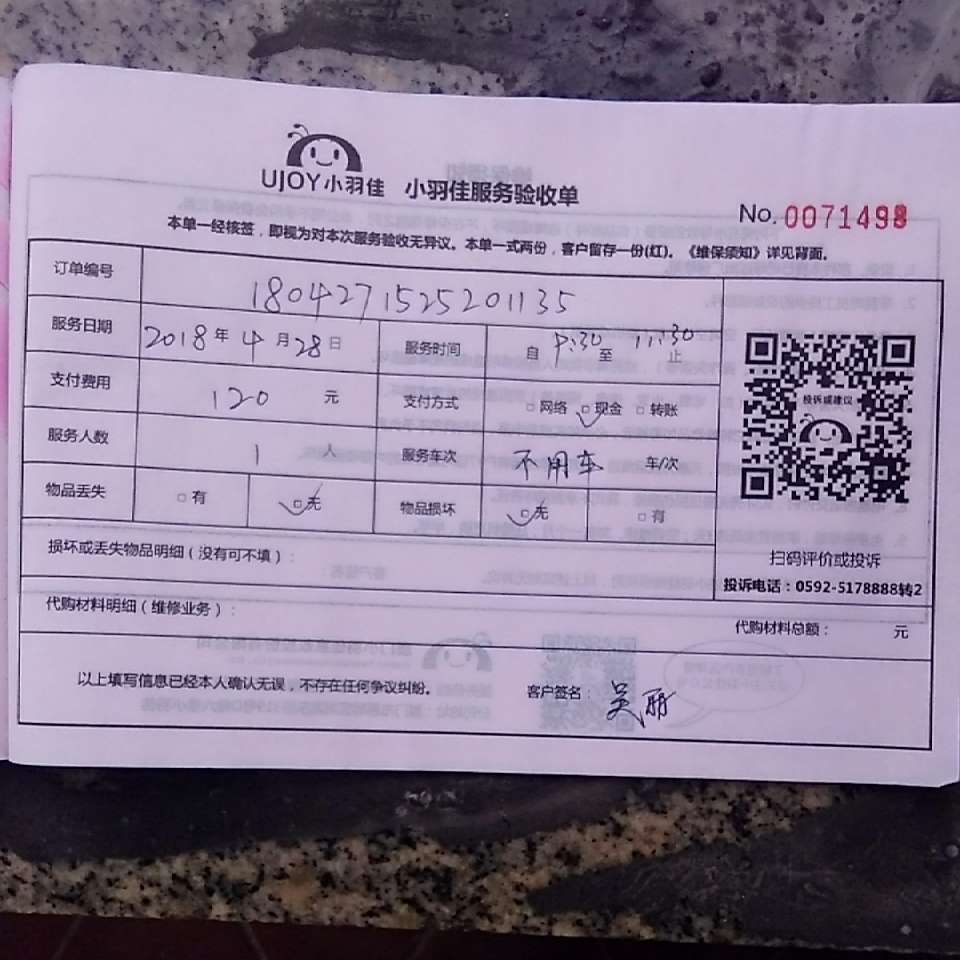 UJOY小羽佳 小羽佳服务验收单
No. 0071498
本单一经核签，即视为对本次服务验收无异议。本单一式两份，客户留存一份(红)。《维保须知》详见背面。
订单编号 1804271525201135
服务日期 2018年4月28日 服务时间 自 8:30 至 11:30 止
支付费用 120 元 支付方式 □网络 □现金 □转账
服务人数 1 人 服务车次 不用车 车/次
物品丢失 □有 □无 物品损坏 □无 □有
投诉或建议
扫码评价或投诉
投诉电话：0592-5178888转2
损坏或丢失物品明细（没有可不填）：
代购材料明细（维修业务）：
代购材料总额： 元
以上填写信息已经本人确认无误，不存在任何争议纠纷。
客户签名：吴丽